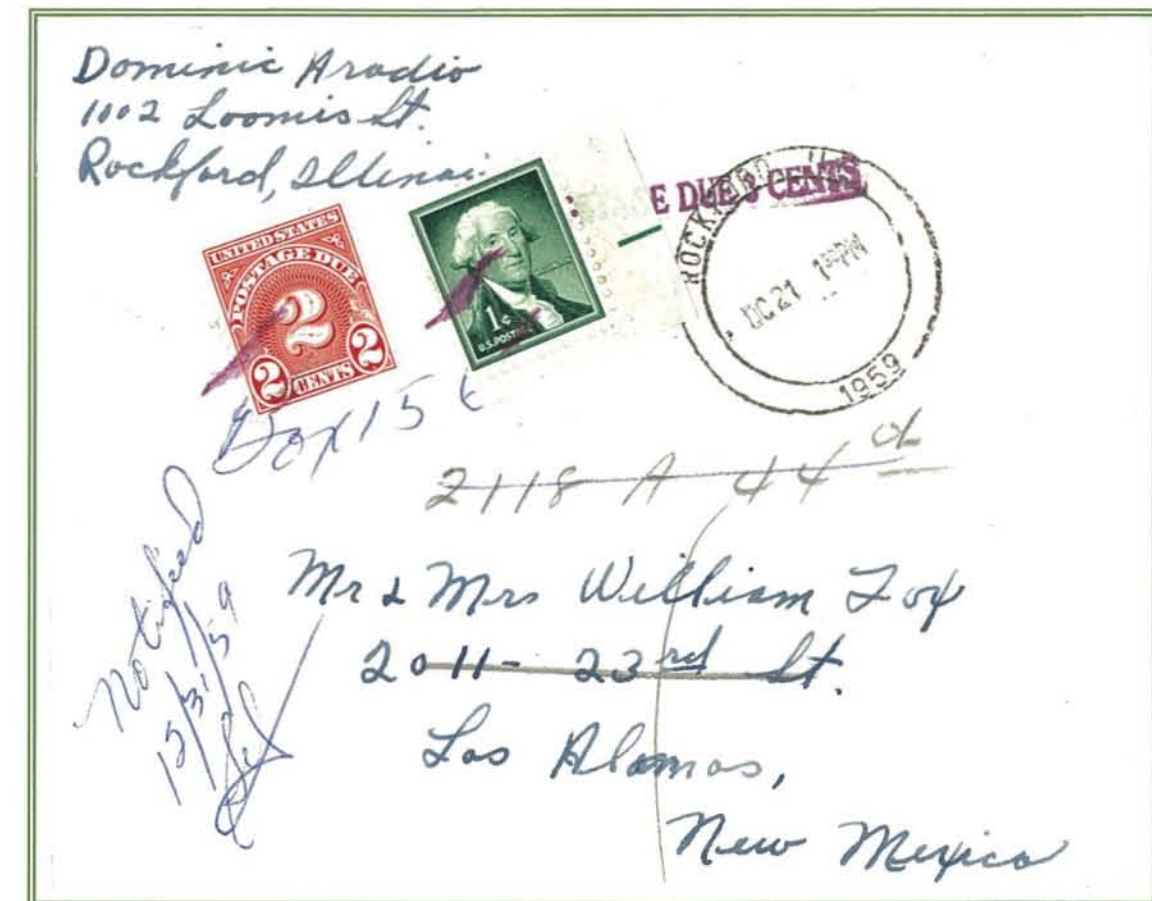 Dominic Aradio
1002 Loomis St.
Rockford, Illinois
E DUE 3 CENTS
UNITED STATES
POSTAGE DUE
2
2 CENTS 2
1¢
U.S. POSTAGE
ROCKFORD, ILL.
DC 21 1 30 PM
1959
Box 15
2118 A 44
Notified
12/31/59
Mr & Mrs William Fox
2011- 23rd St.
Los Alamos,
New Mexico